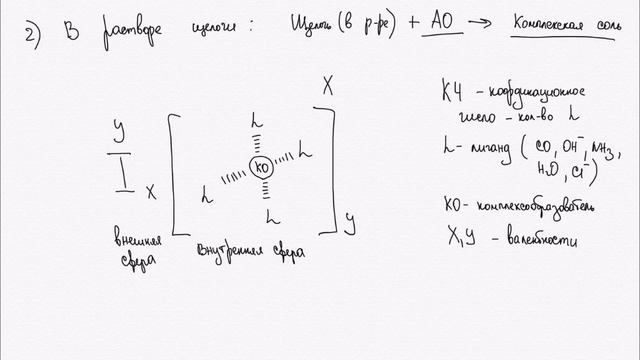 2) В растворе щелочи: Щелочь (в р-ре) + АО → Комплексная соль
X
y
L
L
L
L
КО
X
y
внешняя
сфера
внутренняя сфера
КЧ – координационное
число – кол-во L
L – лиганд (CO, OH⁻, NH₃,
H₂O, Cl⁻)
КО – комплексобразователь
X, y – валентности